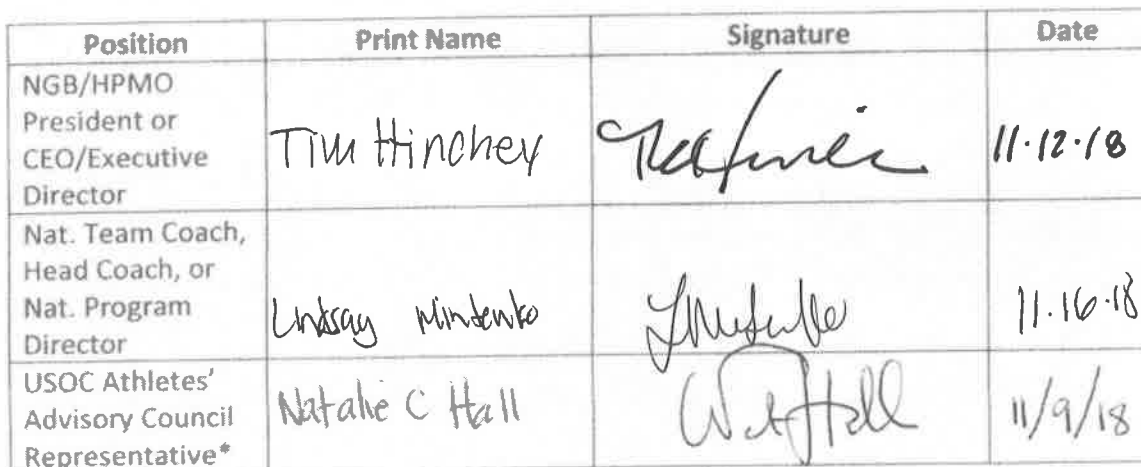 Position Print Name Signature Date
NGB/HPMO
President or
CEO/Executive
Director
Tim Hinchey 11.12.18
Nat. Team Coach,
Head Coach, or
Nat. Program
Director
Lindsay Mintenko 11.16.18
USOC Athletes'
Advisory Council
Representative*
Natalie C Hall 11/9/18